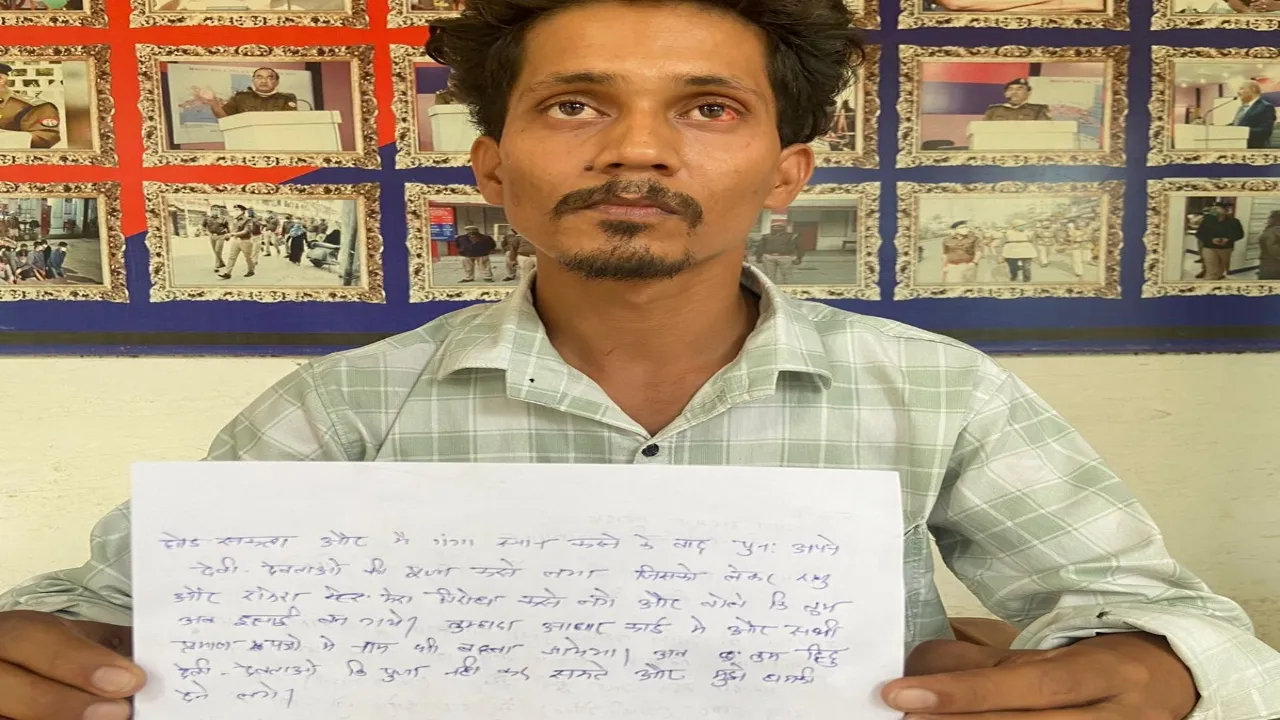 छोड़ सकता और मै गंगा स्नान करने के बाद पुनः अपने
देवी-देवताओ की पूजा करने लगा जिसको लेकर
और मेरा विरोध करने लगे और बोले कि तुम
अब इसाई बन गये। तुम्हारा आधार कार्ड मे और सभी
प्रमाण पत्रो मे नाम भी बदला जायेगा। अब तुम हिन्दु
देवी-देवताओ कि पुजा नही कर सकते और मुझे धमकी
देने लगे।